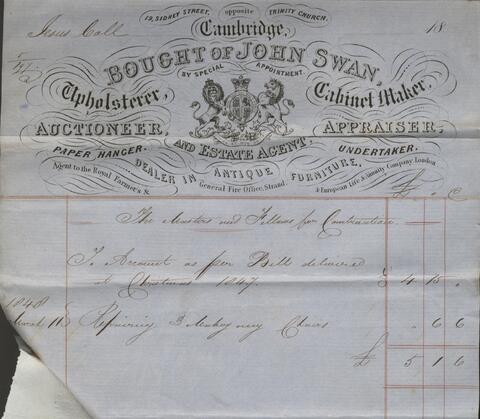 19, SIDNEY STREET, opposite TRINITY CHURCH,
Jesus Coll
Cambridge, 18
BOUGHT OF JOHN SWAN,
BY SPECIAL APPOINTMENT.
Upholsterer, Cabinet Maker,
AUCTIONEER, APPRAISER,
AND ESTATE AGENT,
PAPER HANGER. UNDERTAKER.
DEALER IN ANTIQUE FURNITURE,
Agent to the Royal Farmer's & General Fire Office, Strand. & European Life & Annuity Company, London
£
The Masters and Fellows for
To Account as per Bill delivered
at Christmas 1847. £ 4 15 "
1848
March 11 Repairing 3 Mahogany Chairs " 6 6
£ 5 1 6